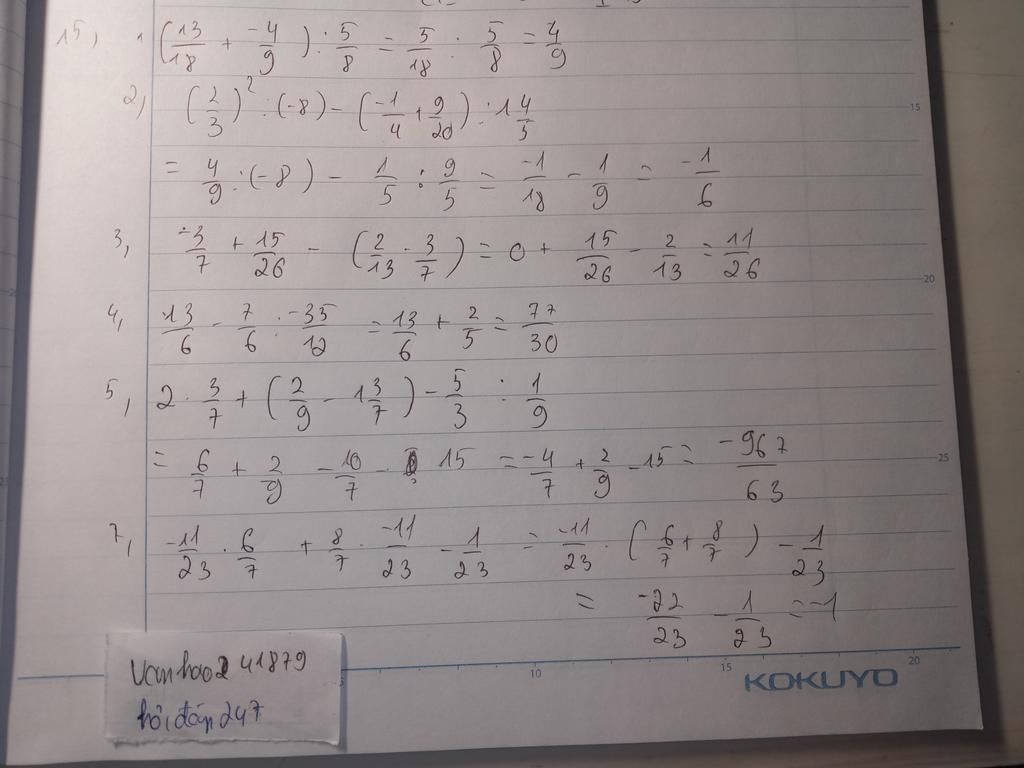 15, 1 (13/18 + -4/9) : 5/8 = 5/18 . 5/8 = 4/9
2, (2/3)² : (-8) - (-1/4 + 9/20) : 1 4/5
= 4/9 : (-8) - 1/5 : 9/5 = -1/18 - 1/9 = -1/6
3, -3/7 + 15/26 - (2/13 - 3/7) = 0 + 15/26 - 2/13 = 11/26
4, 13/6 - 7/6 : -35/12 = 13/6 + 2/5 = 77/30
5, 2 . 3/7 + (2/9 - 1 3/7) - 5/3 : 1/9
= 6/7 + 2/9 - 10/7 - 15 = -4/7 + 2/9 - 15 = -967/63
7, -11/23 . 6/7 + 8/7 . -11/23 - 1/23 = -11/23 . (6/7 + 8/7) - 1/23
= -22/23 - 1/23 = -1
Vanhao241879
hỏi đáp 247
10
15
20
KOKUYO
15
20
25